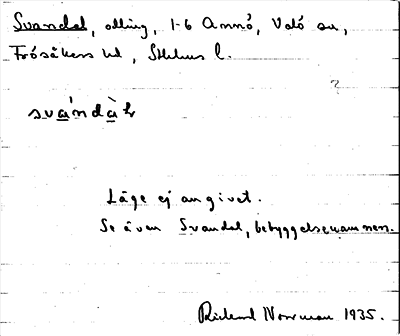 Svandal, odling, 1-6 Annö, Valö sn,
Frösåkers hd, Sthlms l.
?
svándàɫ
Läge ej angivet.
Se även Svandal, bebyggelsenamnen.
Rickard Norrman 1935.